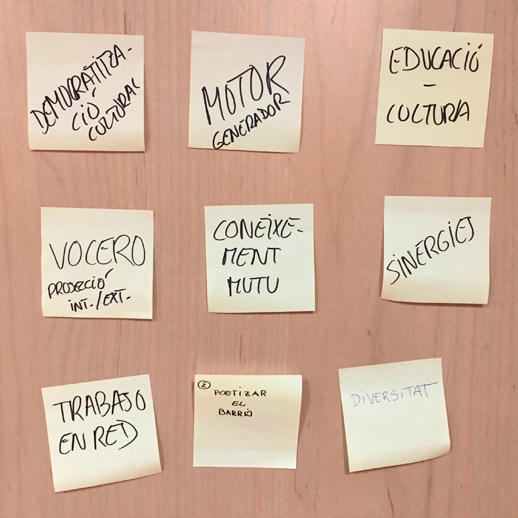 DEMOCRATITZA-
CIÓ
CULTURAL
MOTOR
GENERADOR
EDUCACIÓ
-
CULTURA
VOCERO
PROJECCIÓ
INT./EXT.
CONEIXE-
MENT
MUTU
SINÈRGIES
TRABAJO
EN RED
② POETIZAR
EL
BARRIO
DIVERSITAT